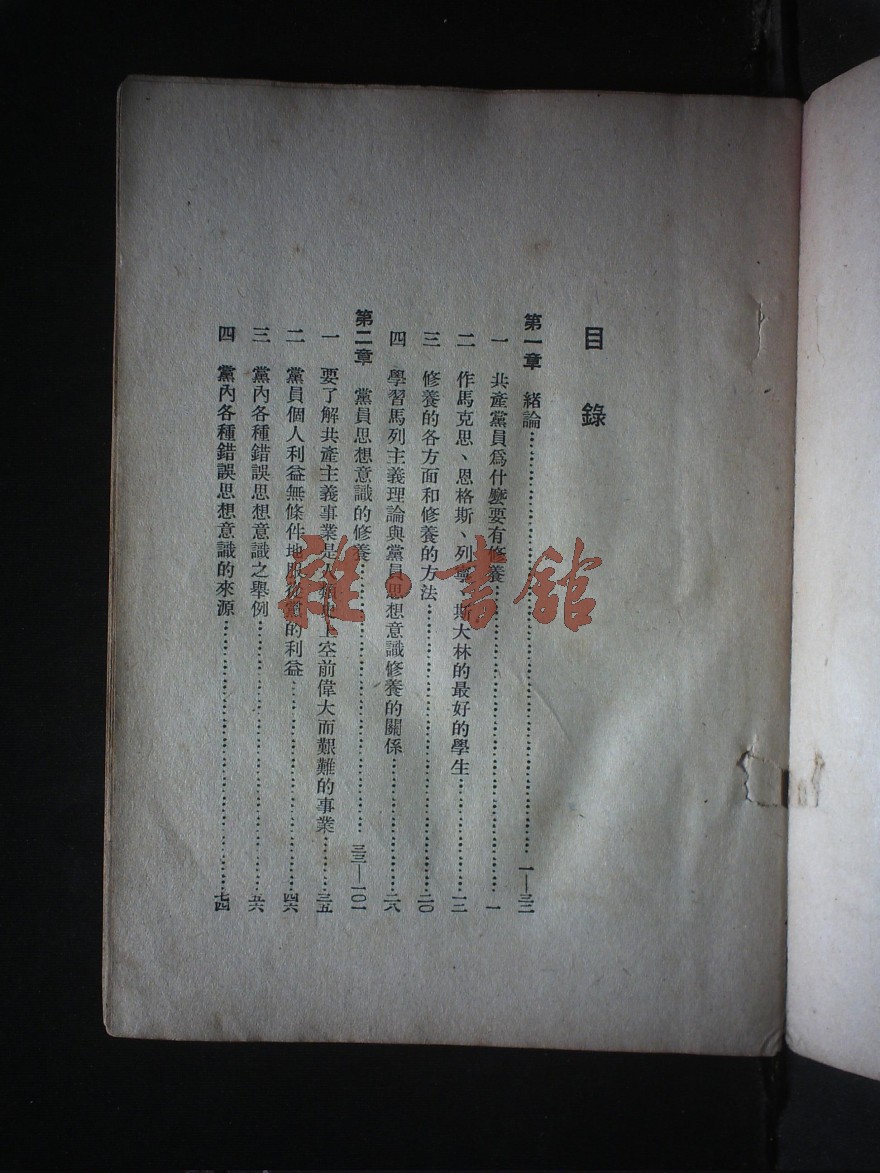 目錄
第一章 緒論……………………一—三二
一 共產黨員爲什麼要有修養……………………一
二 作馬克思、恩格斯、列寧、斯大林的最好的學生……………………一三
三 修養的各方面和修養的方法……………………二〇
四 學習馬列主義理論與黨員思想意識修養的關係……………………二八
第二章 黨員思想意識的修養……………………三三—一〇一
一 要了解共產主義事業是人類史上空前偉大而艱難的事業……………………三五
二 黨員個人利益無條件地服從黨的利益……………………四六
三 黨內各種錯誤思想意識之舉例……………………五六
四 黨內各種錯誤思想意識的來源……………………七四
雜·書舘